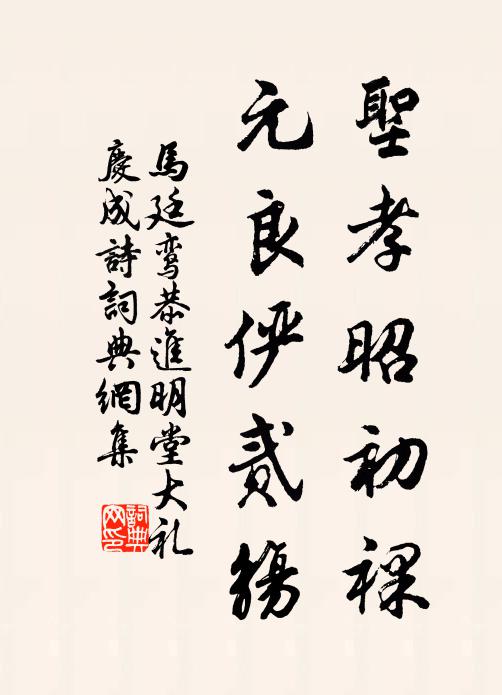 聖孝昭初祼
元良俨貳觴
馬廷鸾恭進明堂大礼
慶成詩詞典網集
詞典
网印